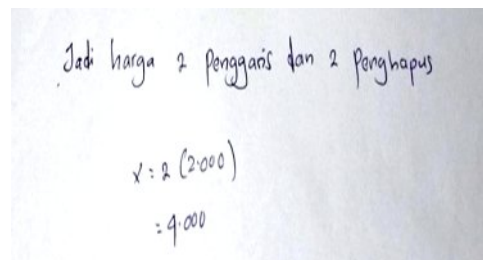 Jadi harga 2 Penggaris dan 2 Penghapus
x = 2 (2.000)
= 4.000